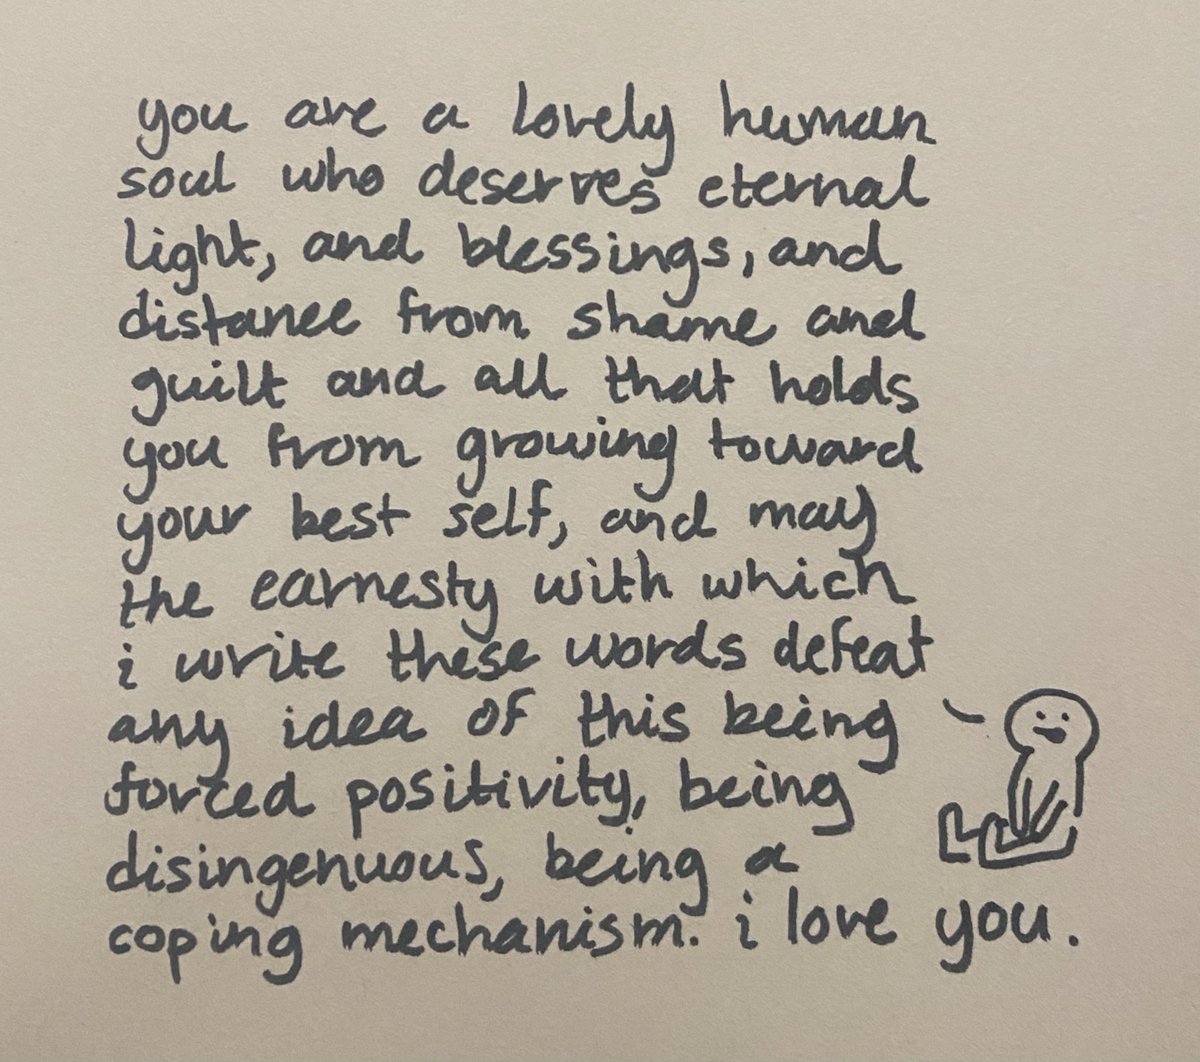 you are a lovely human
soul who deserves eternal
light, and blessings, and
distance from shame and
guilt and all that holds
you from growing toward
your best self, and may
the earnesty with which
i write these words defeat
any idea of this being
forced positivity, being
disingenuous, being a
coping mechanism. i love you.